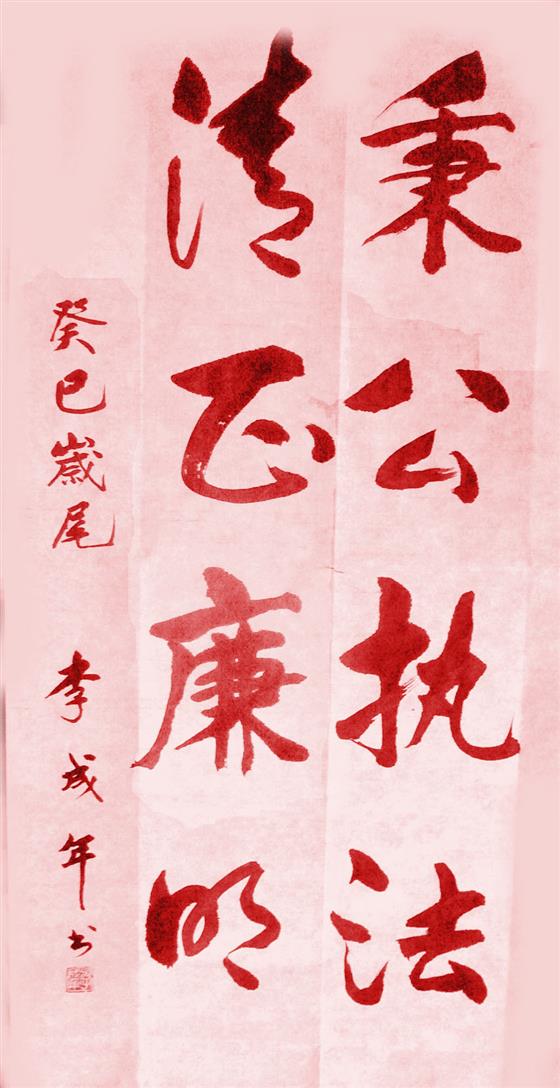 秉公执法
清正廉明
癸巳歲尾 李成年书